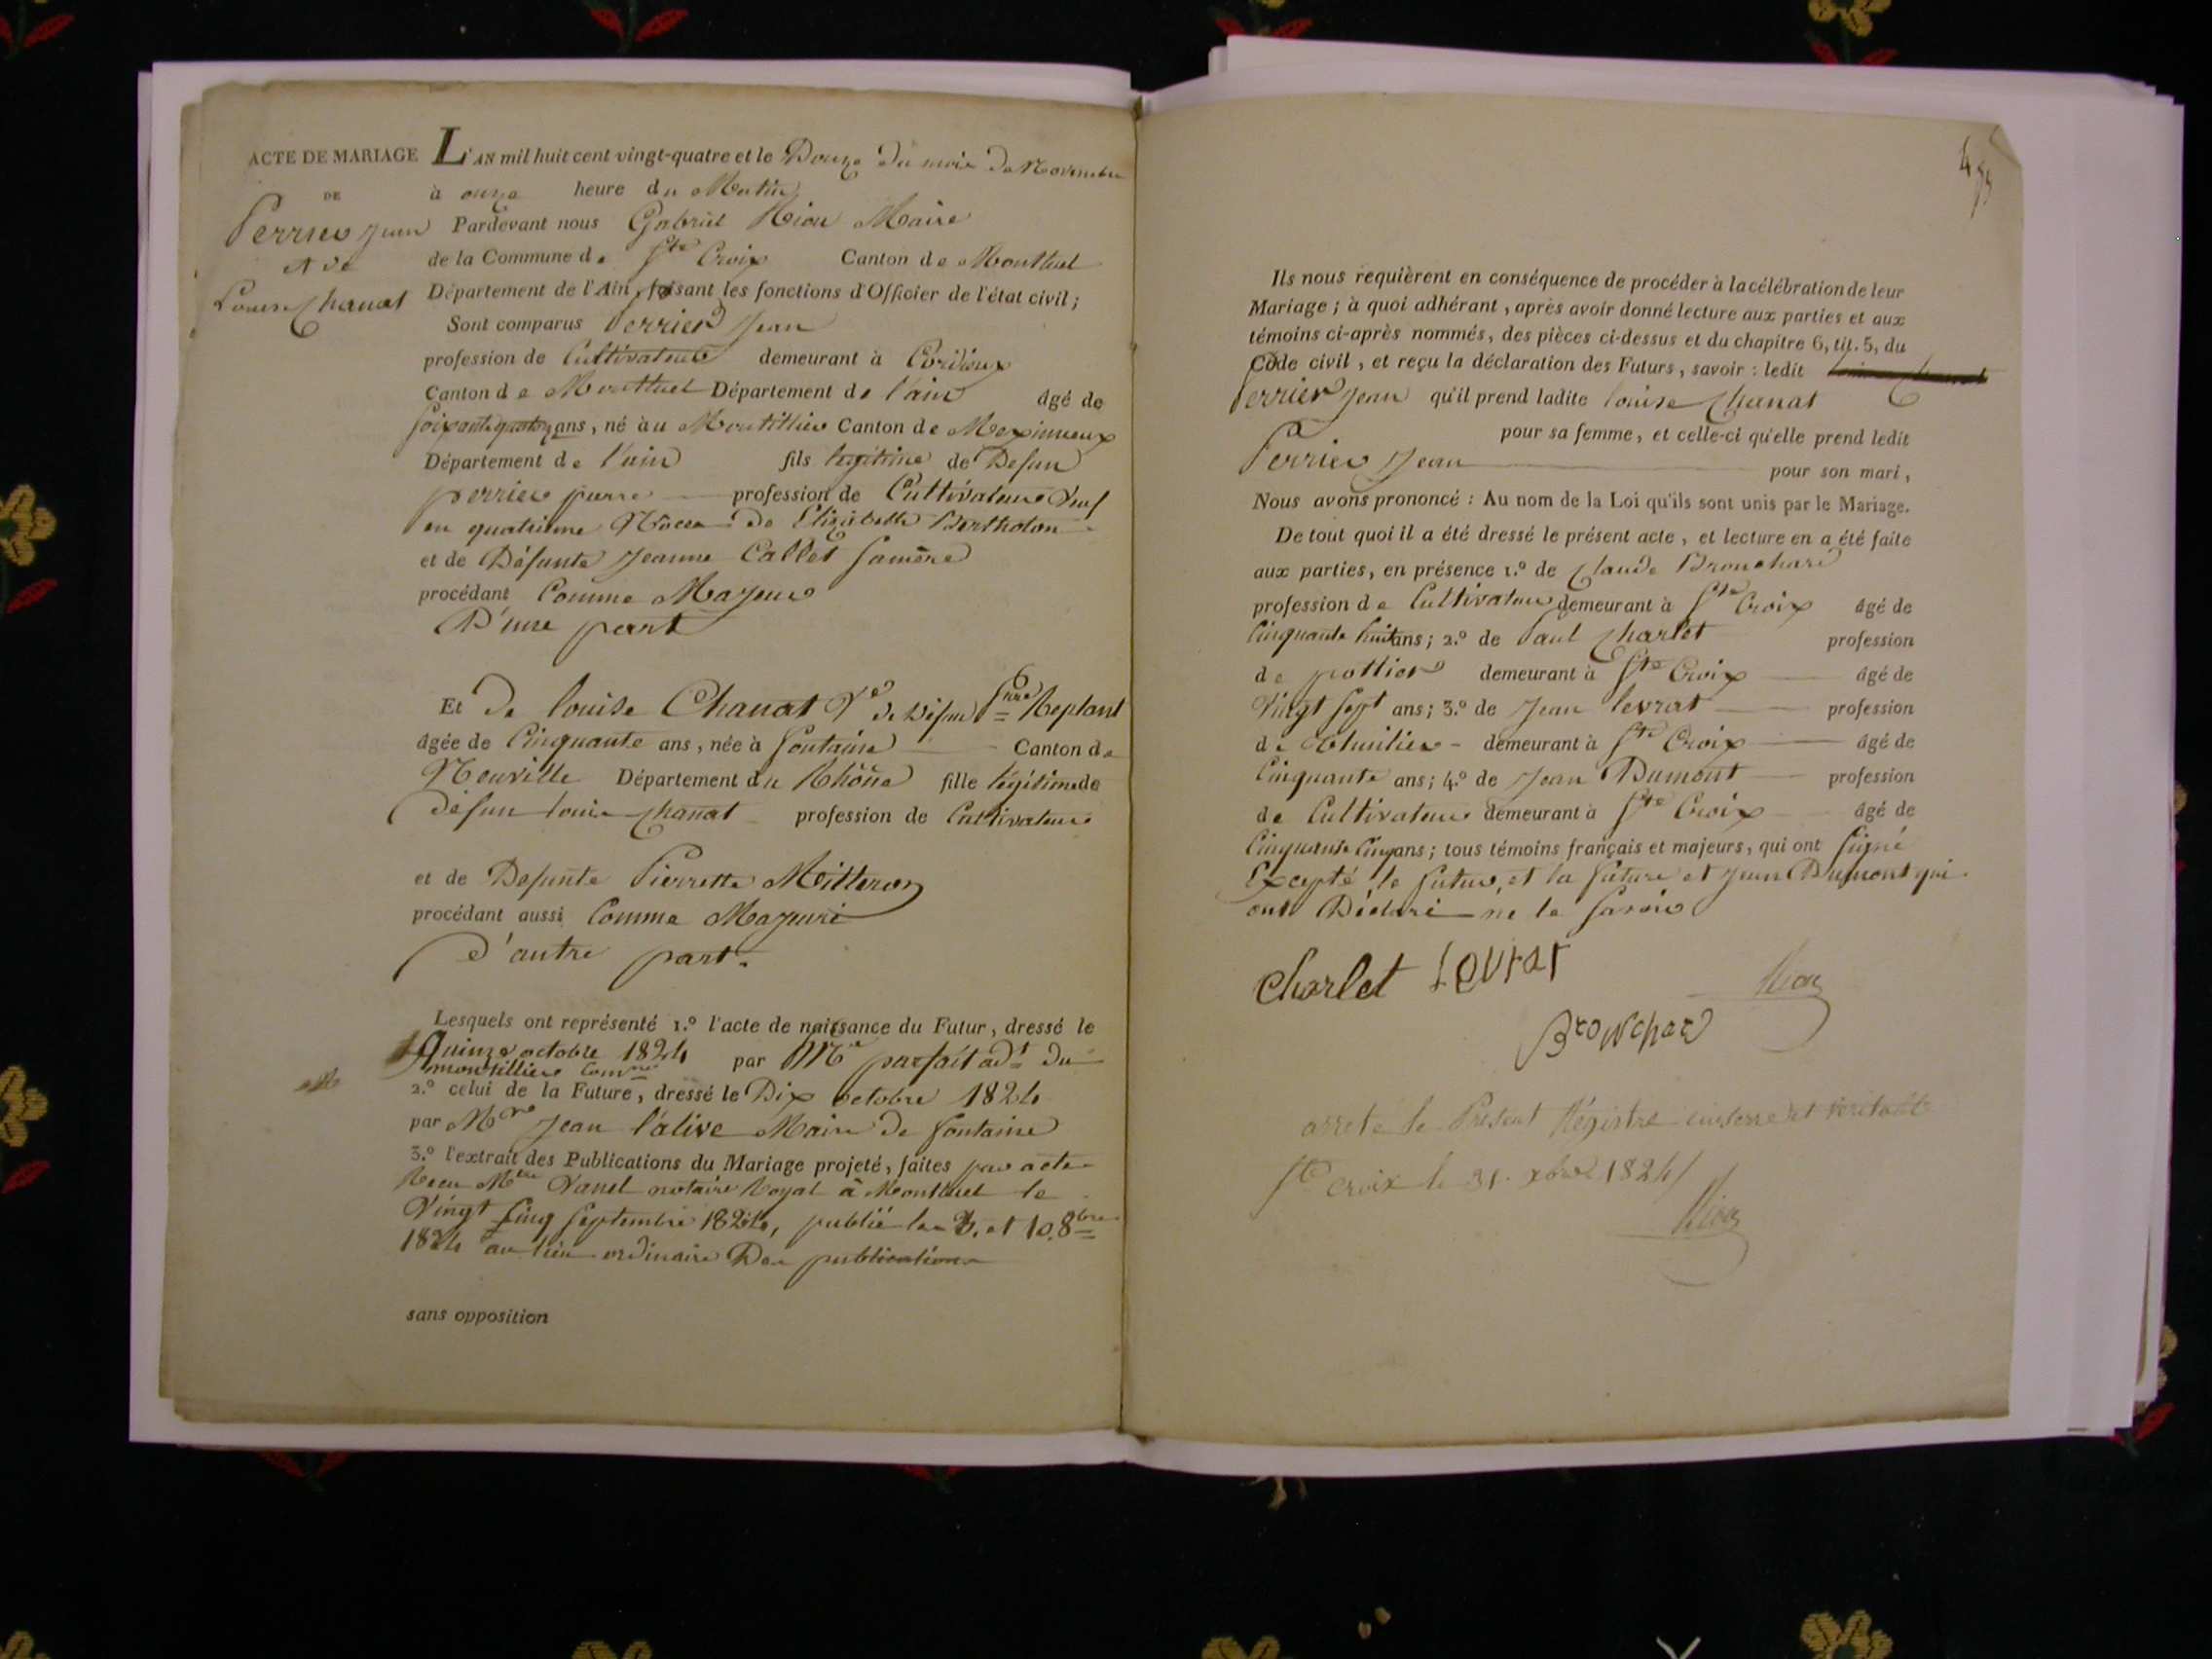 ACTE DE MARIAGE
DE
Perrier Jean
et de
Louise Chanat
L'AN mil huit cent vingt-quatre et le Douze du mois de Novembre
à onze heure du Matin
Pardevant nous Gabriel Riou Maire
de la Commune de Ste Croix Canton de Montluel
Département de l'Ain, faisant les fonctions d'Officier de l'état civil ;
Sont comparus Perrier Jean
profession de Cultivateur demeurant à Cordieux
Canton de Montluel Département de l'ain âgé de
Soixante quatorze ans, né au Montillier Canton de Meximieux
Département de l'ain fils légitime de Defun
perrier pierre profession de Cultivateur Veuf
en quatrième Noces de Elizabette Bertholon
et de Défunte Jeanne Callet Samère
procédant Comme Majeur
D'une part
Et De louise Chanat Ve de Défun Replant
âgée de Cinquante ans, née à fontaine Canton de
Neuville Département du Rhône fille légitime de
Défun louis Chanat profession de Cultivateur
et de Defunte Pierrette Mitteron
procédant aussi Comme Majeure
d'autre part.
Lesquels ont représenté 1.º l'acte de naissance du Futur, dressé le
Quinze octobre 1824 par Mr parfait adt du
montillier
2.º celui de la Future, dressé le Dix octobre 1824
par Mr Jean l'alive Maire de fontaine
3.º l'extrait des Publications du Mariage projeté, faites par acte
Recu Mtre Vanel notaire Royal à Montluel le
Vingt Cinq Septembre 1824, publié les 3. et 10. 8bre
1824 au lieu ordinaire Des publications
sans opposition
Ils nous requièrent en conséquence de procéder à la célébration de leur
Mariage ; à quoi adhérant, après avoir donné lecture aux parties et aux
témoins ci-après nommés, des pièces ci-dessus et du chapitre 6, tit. 5, du
Code civil, et reçu la déclaration des Futurs, savoir : ledit
Perrier Jean qu'il prend ladite louise Chanat
pour sa femme, et celle-ci qu'elle prend ledit
Perrier Jean pour son mari,
Nous avons prononcé : Au nom de la Loi qu'ils sont unis par le Mariage.
De tout quoi il a été dressé le présent acte, et lecture en a été faite
aux parties, en présence 1.º de Claude Brouchard
profession de Cultivateur demeurant à Ste Croix âgé de
Cinquante huit ans ; 2.º de Paul Charlet profession
de pottier demeurant à Ste Croix âgé de
Vingt Sept ans ; 3.º de Jean levrat profession
de thuilier demeurant à Ste Croix âgé de
Cinquante ans ; 4.º de Jean Dumont profession
de Cultivateur demeurant à Ste Croix âgé de
Cinquante Cinq ans ; tous témoins français et majeurs, qui ont Signé
Excepté le futur, et la future et Jean Dumont qui
ont Déclaré ne le Savoir
Charlet Levrat
Riou
Brouchard
arrete le Présent Régistre et veritable
Ste croix le 31. xbre 1824
Riou